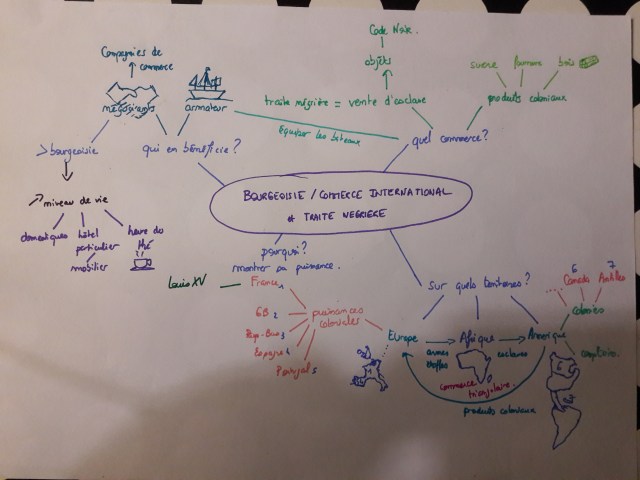 Code Noir.
Compagnies de
commerce
objets
sucre fourrure bois
négociants
armateur
traite négrière = vente d'esclave
produits coloniaux
Équiper les bateaux
> bourgeoisie
qui en bénéficie ?
quel commerce ?
BOURGEOISIE / COMMERCE INTERNATIONAL
et TRAITE NEGRIERE
niveau de vie
domestiques
hôtel
particulier
mobilier
heure du
thé
pourquoi ?
montrer sa puissance.
Louis XV
France 1
GB 2
Pays-Bas 3
Espagne 4
Portugal 5
puissances
coloniales
sur quels territoires ?
6 7
Canada Antilles
colonies
Europe
Afrique
Amérique
armes
étoffes
esclaves
commerce
triangulaire.
produits coloniaux